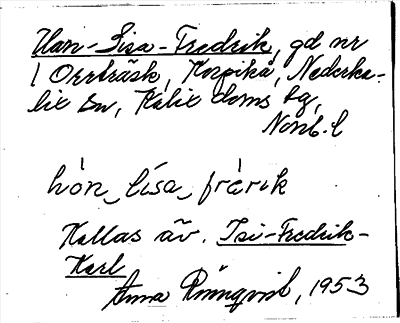 Han-Lisa-Fredrik, gd nr
1 Orrträsk, Korpikå, Nederka-
lix sn, Kalix doms bg,
Norrb. l
hòn_lísa_frärik
Kallas äv. Isi-Fredrik-
Karl
Anna Rönnqvist, 1953